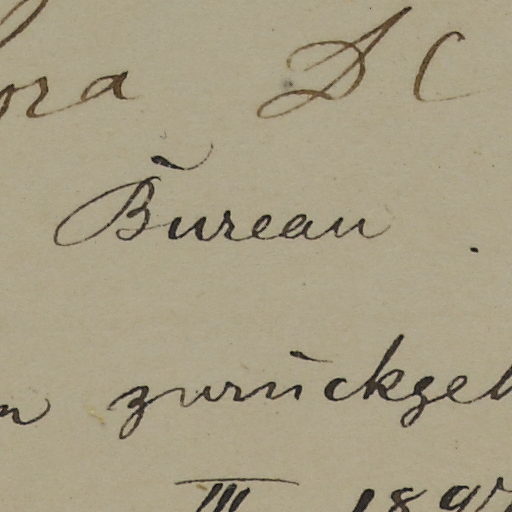 ora D C
Bureau .
n zurückgeb
III 189